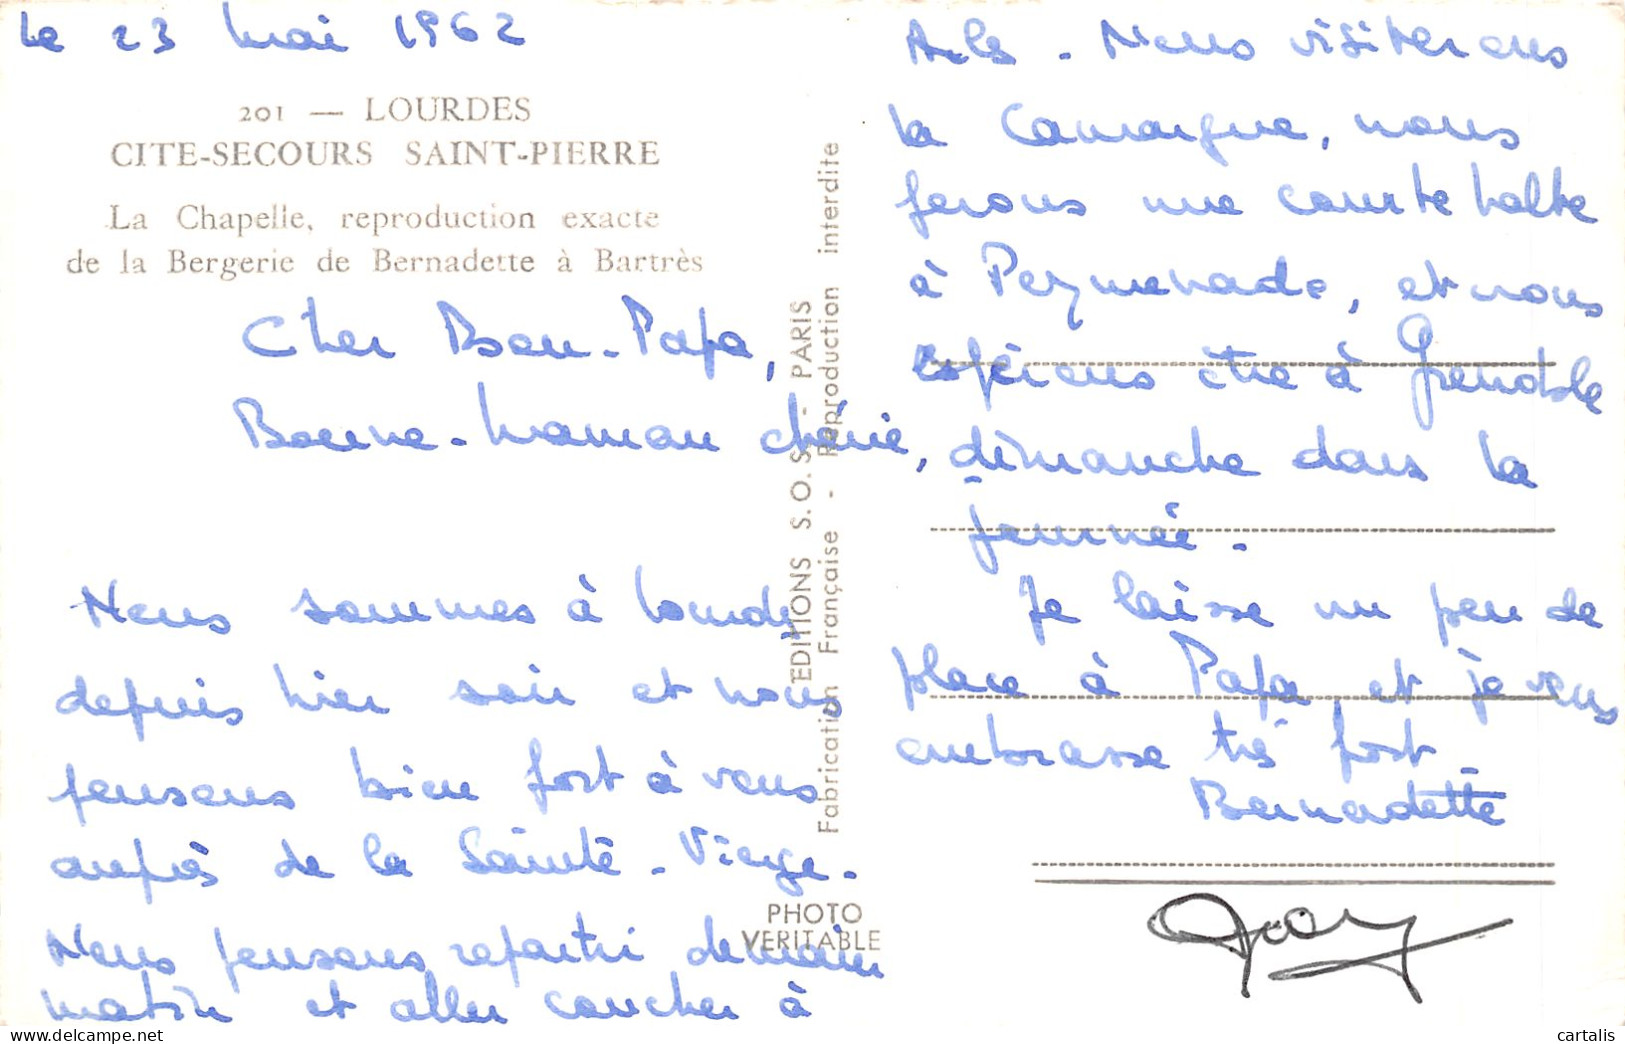 le 23 mai 1962
201 — LOURDES
CITE-SECOURS SAINT-PIERRE
La Chapelle, reproduction exacte
de la Bergerie de Bernadette à Bartrès
Cher Bon-Papa,
Bonne-Maman chérie,
Nous sommes à Lourdes
depuis hier soir et nous
pensons bien fort à vous
auprès de la Sainte-Vierge.
Nous pensons repartir demain
matin et aller coucher à
EDITIONS S. O. S. - PARIS
Fabrication Française - Reproduction interdite
PHOTO
VERITABLE
Arles. Nous visiterons
la Camargue, nous
ferons une courte halte
à Peymenade, et nous
espérons être à Grenoble
dimanche dans la
journée.
Je laisse un peu de
place à Papa et je vous
embrasse très fort
Bernadette
cartalis